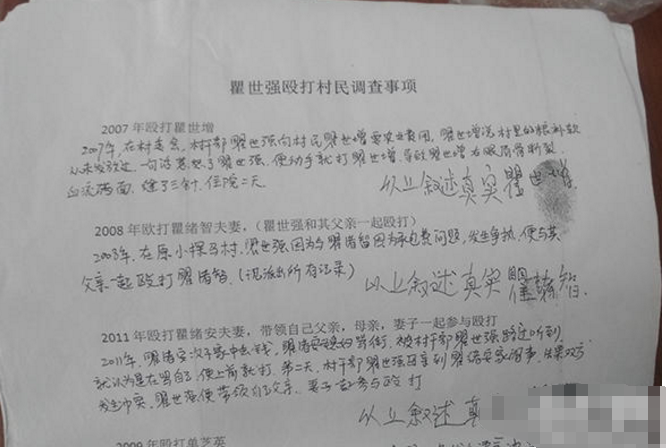 瞿世强殴打村民调查事项
2007年殴打瞿世增
2007年,在村委会,村干部瞿世强向村民瞿世增要农业费用,瞿世增说村里的粮补款
从未发放过,一句话惹怒了瞿世强,便动手就打瞿世增,导致瞿世增右眼眉骨断裂,
血流满面,缝了三针,住院二天
以上叙述真实 瞿世增
2008年欧打瞿绪智夫妻,(瞿世强和其父亲一起殴打)
2008年,在原小探马村,瞿世强因为与瞿绪智因为承包费问题,发生争执,便与其
父亲一起殴打瞿绪智,(派出所有记录)
以上叙述真实 瞿绪智
2011年殴打瞿绪安夫妻,带领自己父亲,母亲,妻子一起参与殴打
2011年,瞿绪安 家中 钱,瞿绪安媳妇骂街,被村干部瞿世强路过听到,
就认为是在骂自己,便上前就打,第二天,村干部瞿世强 到瞿绪安家闹事,结果双方
发生冲突,瞿世强便带领自己父亲,妻子一起参与殴打
以上叙述真
2009年殴打单芝英